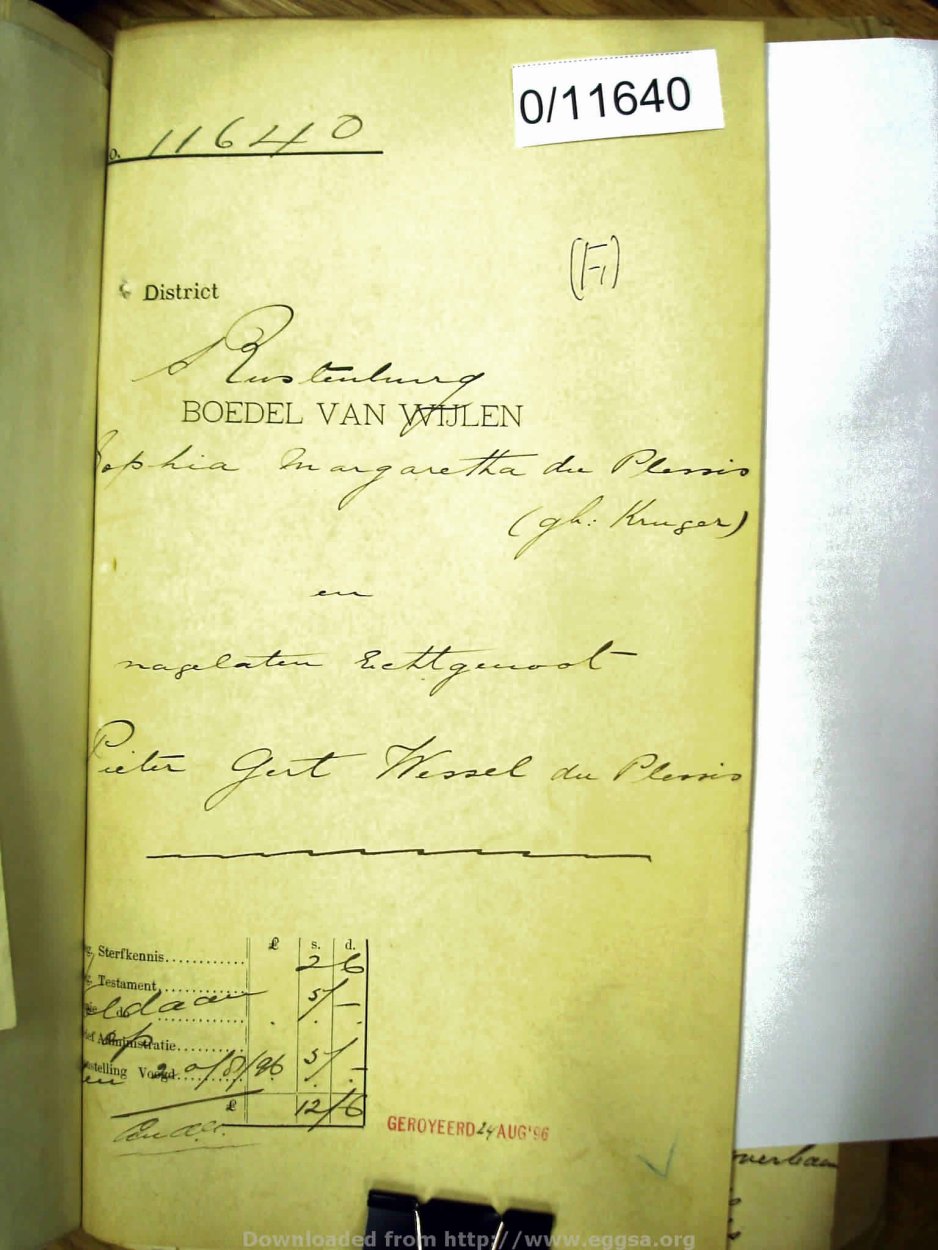 0/11640
o. 11640
(F)
District
Rustenburg
BOEDEL VAN WIJLEN
Sophia Margaretha du Plessis
(gb: Kruger)
en
nagelaten Echtgenoot
Pieter Gert Wessel du Plessis
£ s. d.
g. Sterfkennis............ 2 6
g. Testament............ 5/-
ie do............
Voldaan
ef Administratie.......... 5/-
op
telling Voogd............
20/8/96
£ 12/6
GEROYEERD 24 AUG '96
Downloaded from http://www.eggsa.org